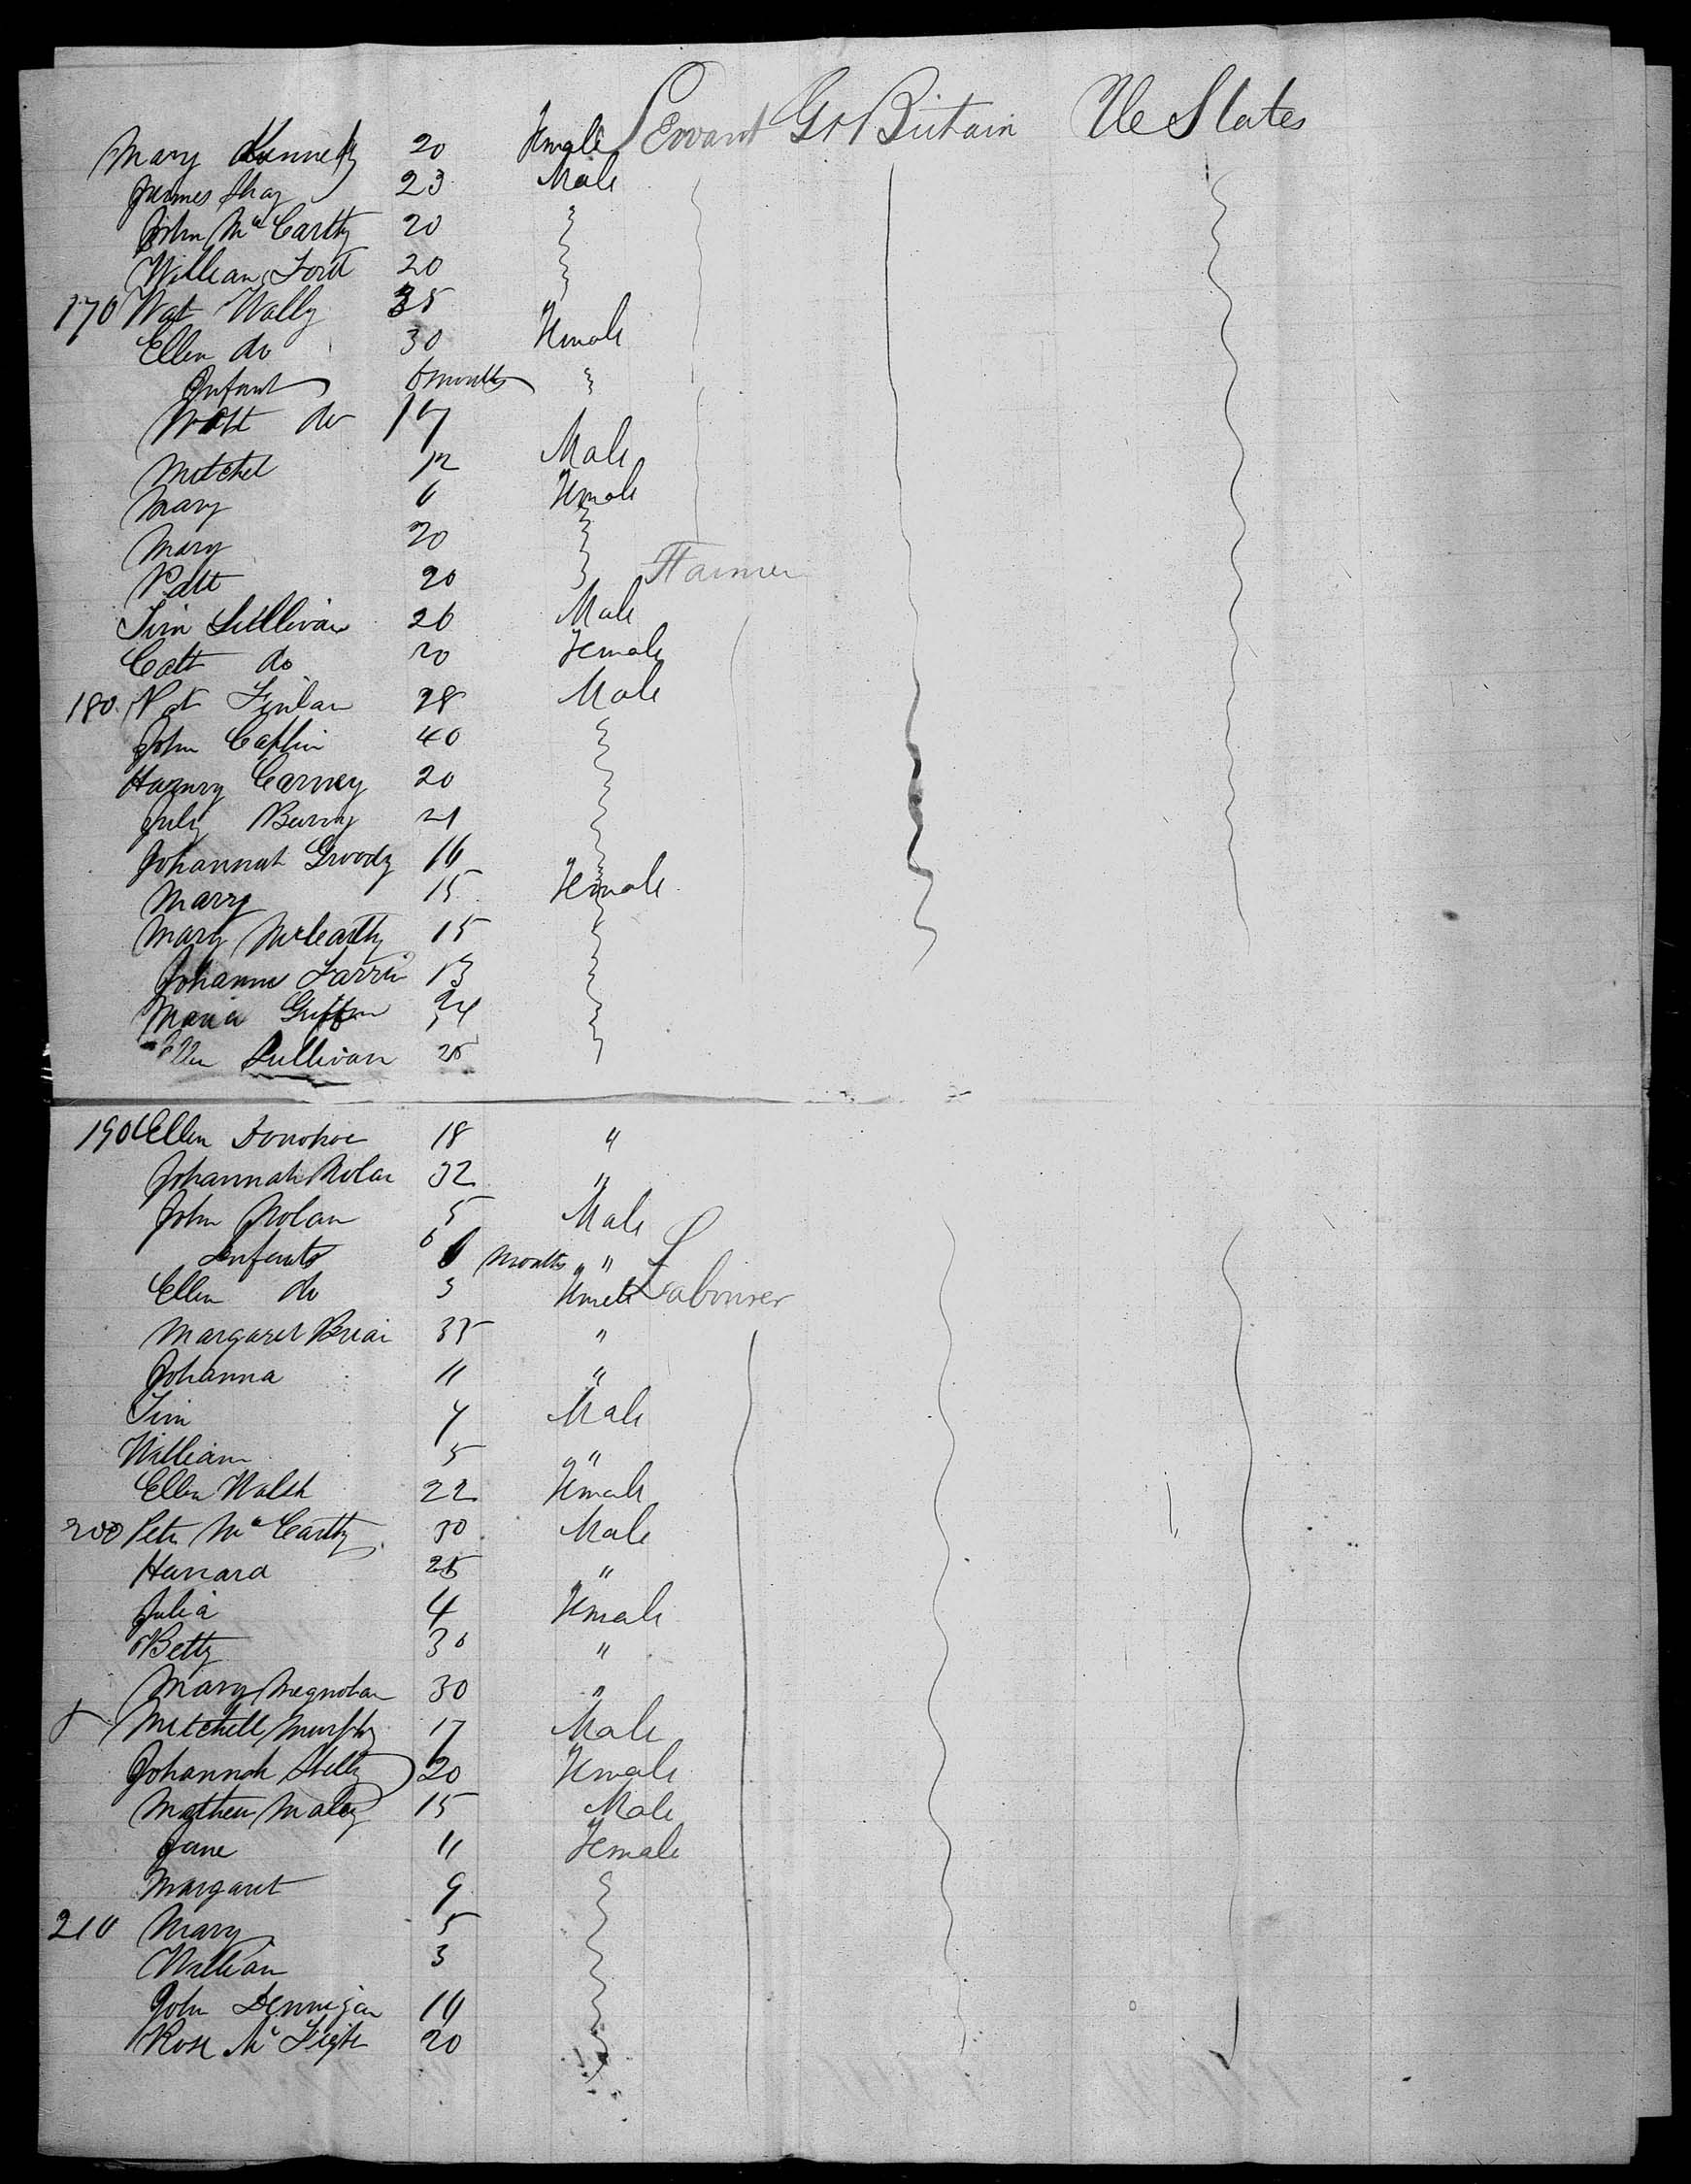 Mary Kennedy 20 Female Servant Gr Britain Ue States
James Shay 23 Male
John Mc Carthy 20
William Ford 20
170 Wat Wally 35
Ellen do 30 Female
Infant 6 months
Watt do 17
Mitchel 12 Male
Mary 6 Female
Mary 20
Patt 20 Farmer
Tim Sullivan 26 Male
Catt do 20 Female
180 Pat Finlan 28 Male
John Caplin 40
Harnry Carney 20
July Barry 21
Johannah Groody 16
Marry 15 Female
Mary McCarthy 15
Johanna Farrin 13
Maria Griffin 24
Ellen Sullivan 25
190 Ellen Donohoe 18 "
Johannah Nolan 32 "
John Nolan 5 Male
Infants 6 months "
Ellen do 3 Female Labourer
Margaret Brian 35 "
Johanna 11 "
Tim 7 Male
William 5 "
Ellen Walsh 22 Female
200 Peter Mc Carthy 30 Male
Hanara 25 "
Julia 4 Female
Betty 30 "
Mary 30 "
Mitchell Murphy 17 Male
Johannah 20 Female
Mathew Maley 15 Male
Jane 11 Female
Margaret 9
210 Mary 5
William 3
John Dennigan 14
Rose Mc Tigh 20